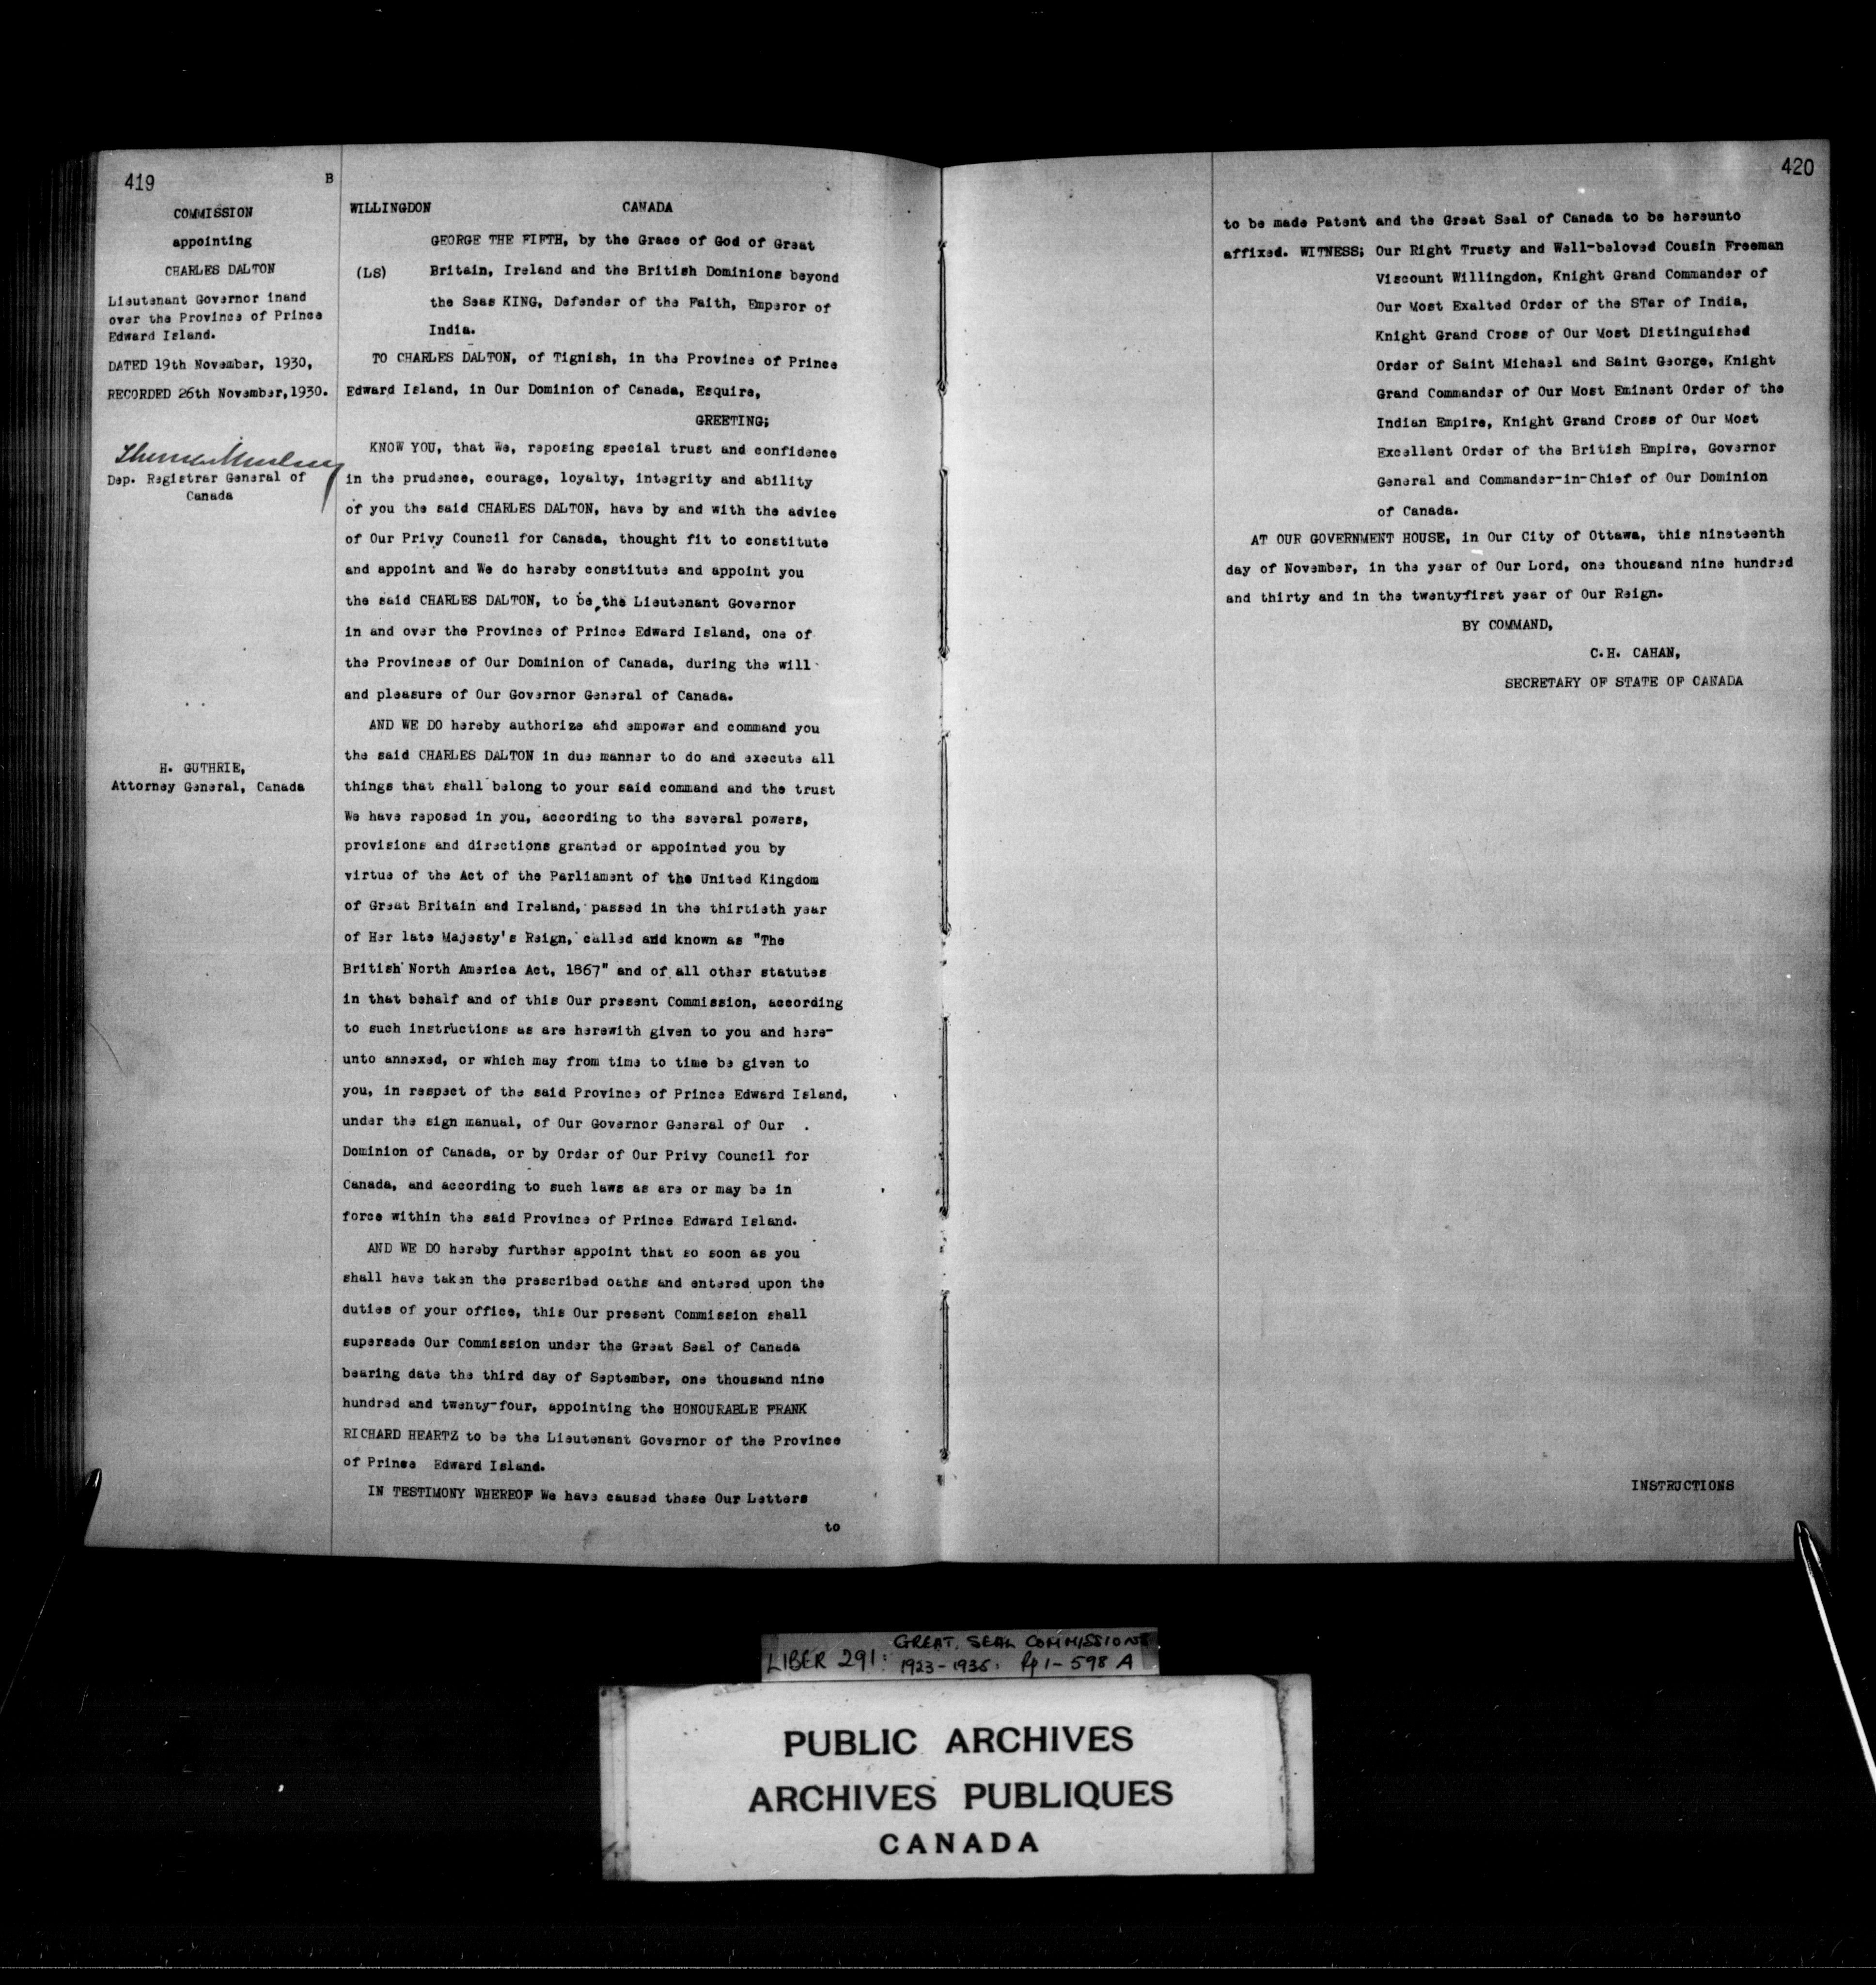 419
B
COMMISSION
appointing
CHARLES DALTON
Lieutenant Governor inand
over the Province of Prince
Edward Island.
DATED 19th November, 1930,
RECORDED 26th November,1930.
Dep. Registrar General of
Canada
H. GUTHRIE,
Attorney General, Canada
WILLINGDON CANADA
GEORGE THE FIFTH, by the Grace of God of Great
(LS) Britain, Ireland and the British Dominions beyond
the Seas KING, Defender of the Faith, Emperor of
India.
TO CHARLES DALTON, of Tignish, in the Province of Prince
Edward Island, in Our Dominion of Canada, Esquire,
GREETING;
KNOW YOU, that We, reposing special trust and confidence
in the prudence, courage, loyalty, integrity and ability
of you the said CHARLES DALTON, have by and with the advice
of Our Privy Council for Canada, thought fit to constitute
and appoint and We do hereby constitute and appoint you
the said CHARLES DALTON, to be the Lieutenant Governor
in and over the Province of Prince Edward Island, one of
the Provinces of Our Dominion of Canada, during the will
and pleasure of Our Governor General of Canada.
AND WE DO hereby authorize and empower and command you
the said CHARLES DALTON in due manner to do and execute all
things that shall belong to your said command and the trust
We have reposed in you, according to the several powers,
provisions and directions granted or appointed you by
virtue of the Act of the Parliament of the United Kingdom
of Great Britain and Ireland, passed in the thirtieth year
of Her late Majesty's Reign, called and known as "The
British North America Act, 1867" and of all other statutes
in that behalf and of this Our present Commission, according
to such instructions as are herewith given to you and here-
unto annexed, or which may from time to time be given to
you, in respect of the said Province of Prince Edward Island,
under the sign manual, of Our Governor General of Our
Dominion of Canada, or by Order of Our Privy Council for
Canada, and according to such laws as are or may be in
force within the said Province of Prince Edward Island.
AND WE DO hereby further appoint that so soon as you
shall have taken the prescribed oaths and entered upon the
duties of your office, this Our present Commission shall
supersede Our Commission under the Great Seal of Canada
bearing date the third day of September, one thousand nine
hundred and twenty-four, appointing the HONOURABLE FRANK
RICHARD HEARTZ to be the Lieutenant Governor of the Province
of Prince Edward Island.
IN TESTIMONY WHEREOF We have caused these Our Letters
to
420
to be made Patent and the Great Seal of Canada to be hereunto
affixed. WITNESS; Our Right Trusty and Well-beloved Cousin Freeman
Viscount Willingdon, Knight Grand Commander of
Our Most Exalted Order of the STar of India,
Knight Grand Cross of Our Most Distinguished
Order of Saint Michael and Saint George, Knight
Grand Commander of Our Most Eminent Order of the
Indian Empire, Knight Grand Cross of Our Most
Excellent Order of the British Empire, Governor
General and Commander-in-Chief of Our Dominion
of Canada.
AT OUR GOVERNMENT HOUSE, in Our City of Ottawa, this nineteenth
day of November, in the year of Our Lord, one thousand nine hundred
and thirty and in the twenty-first year of Our Reign.
BY COMMAND,
C.H. CAHAN,
SECRETARY OF STATE OF CANADA
INSTRUCTIONS
LIBER 291: GREAT SEAL COMMISSIONS
1923-1935: Pp 1-598 A
PUBLIC ARCHIVES
ARCHIVES PUBLIQUES
CANADA